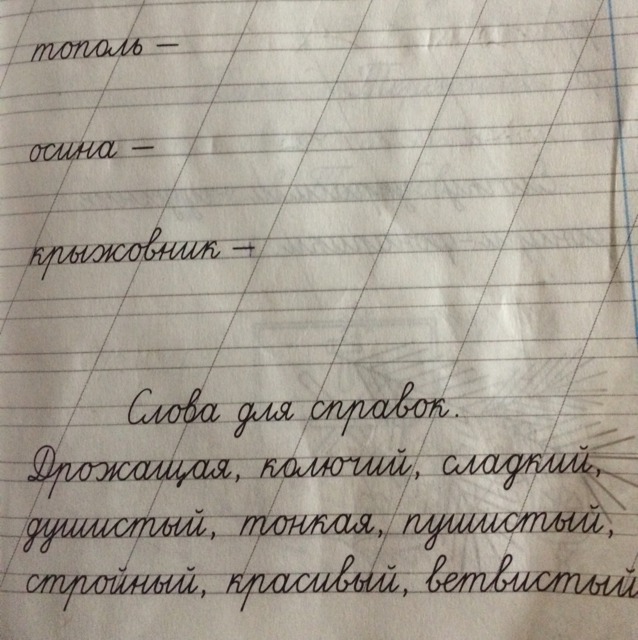 тополь —
осина —
крыжовник —
Слова для справок.
Дрожащая, колючий, сладкий,
душистый, тонкая, пушистый,
стройный, красивый, ветвистый